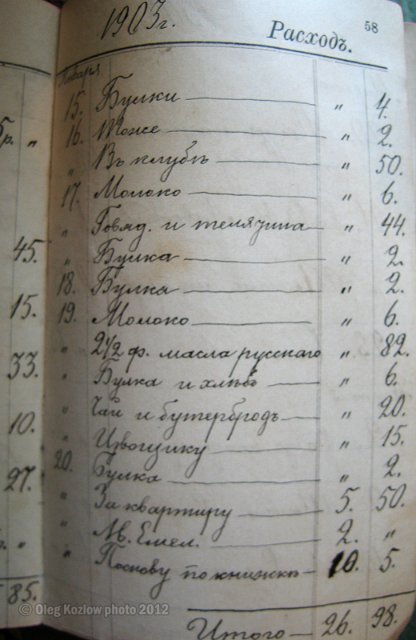 1903 г.
Расходъ.
58
Января
15. Булки — „ 4.
16. Тоже — „ 2.
„ Въ клубѣ — „ 50.
17. Молоко — „ 6.
„ Говяд. и телятина „ 44.
„ Булка — „ 2.
18. Булка — „ 2.
19. Молоко — „ 6.
„ 2 1/2 ф. масла русскаго „ 82.
„ Булка и хлѣбъ — „ 6.
„ Чай и бутербродъ — „ 20.
„ Извощику — „ 15.
20. Булка — „ 2.
„ За квартиру — 5. 50.
„ Емел. — 2. „
„ по книжкѣ 10. 5.
Итого — 26. 98.
45.
15.
33.
10.
27.
85.
© Oleg Kozlow photo 2012